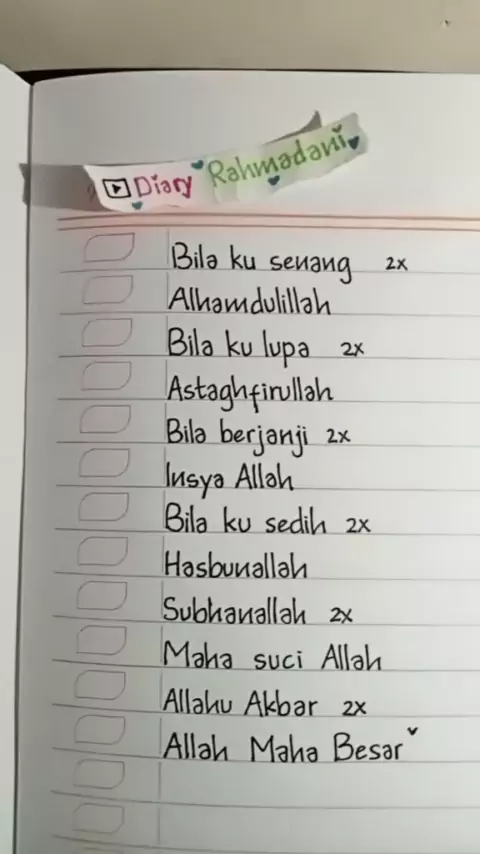 Diary Rahmadani
Bila ku senang 2x
Alhamdulillah
Bila ku lupa 2x
Astaghfirullah
Bila berjanji 2x
Insya Allah
Bila ku sedih 2x
Hasbunallah
Subhanallah 2x
Maha suci Allah
Allahu Akbar 2x
Allah Maha Besar